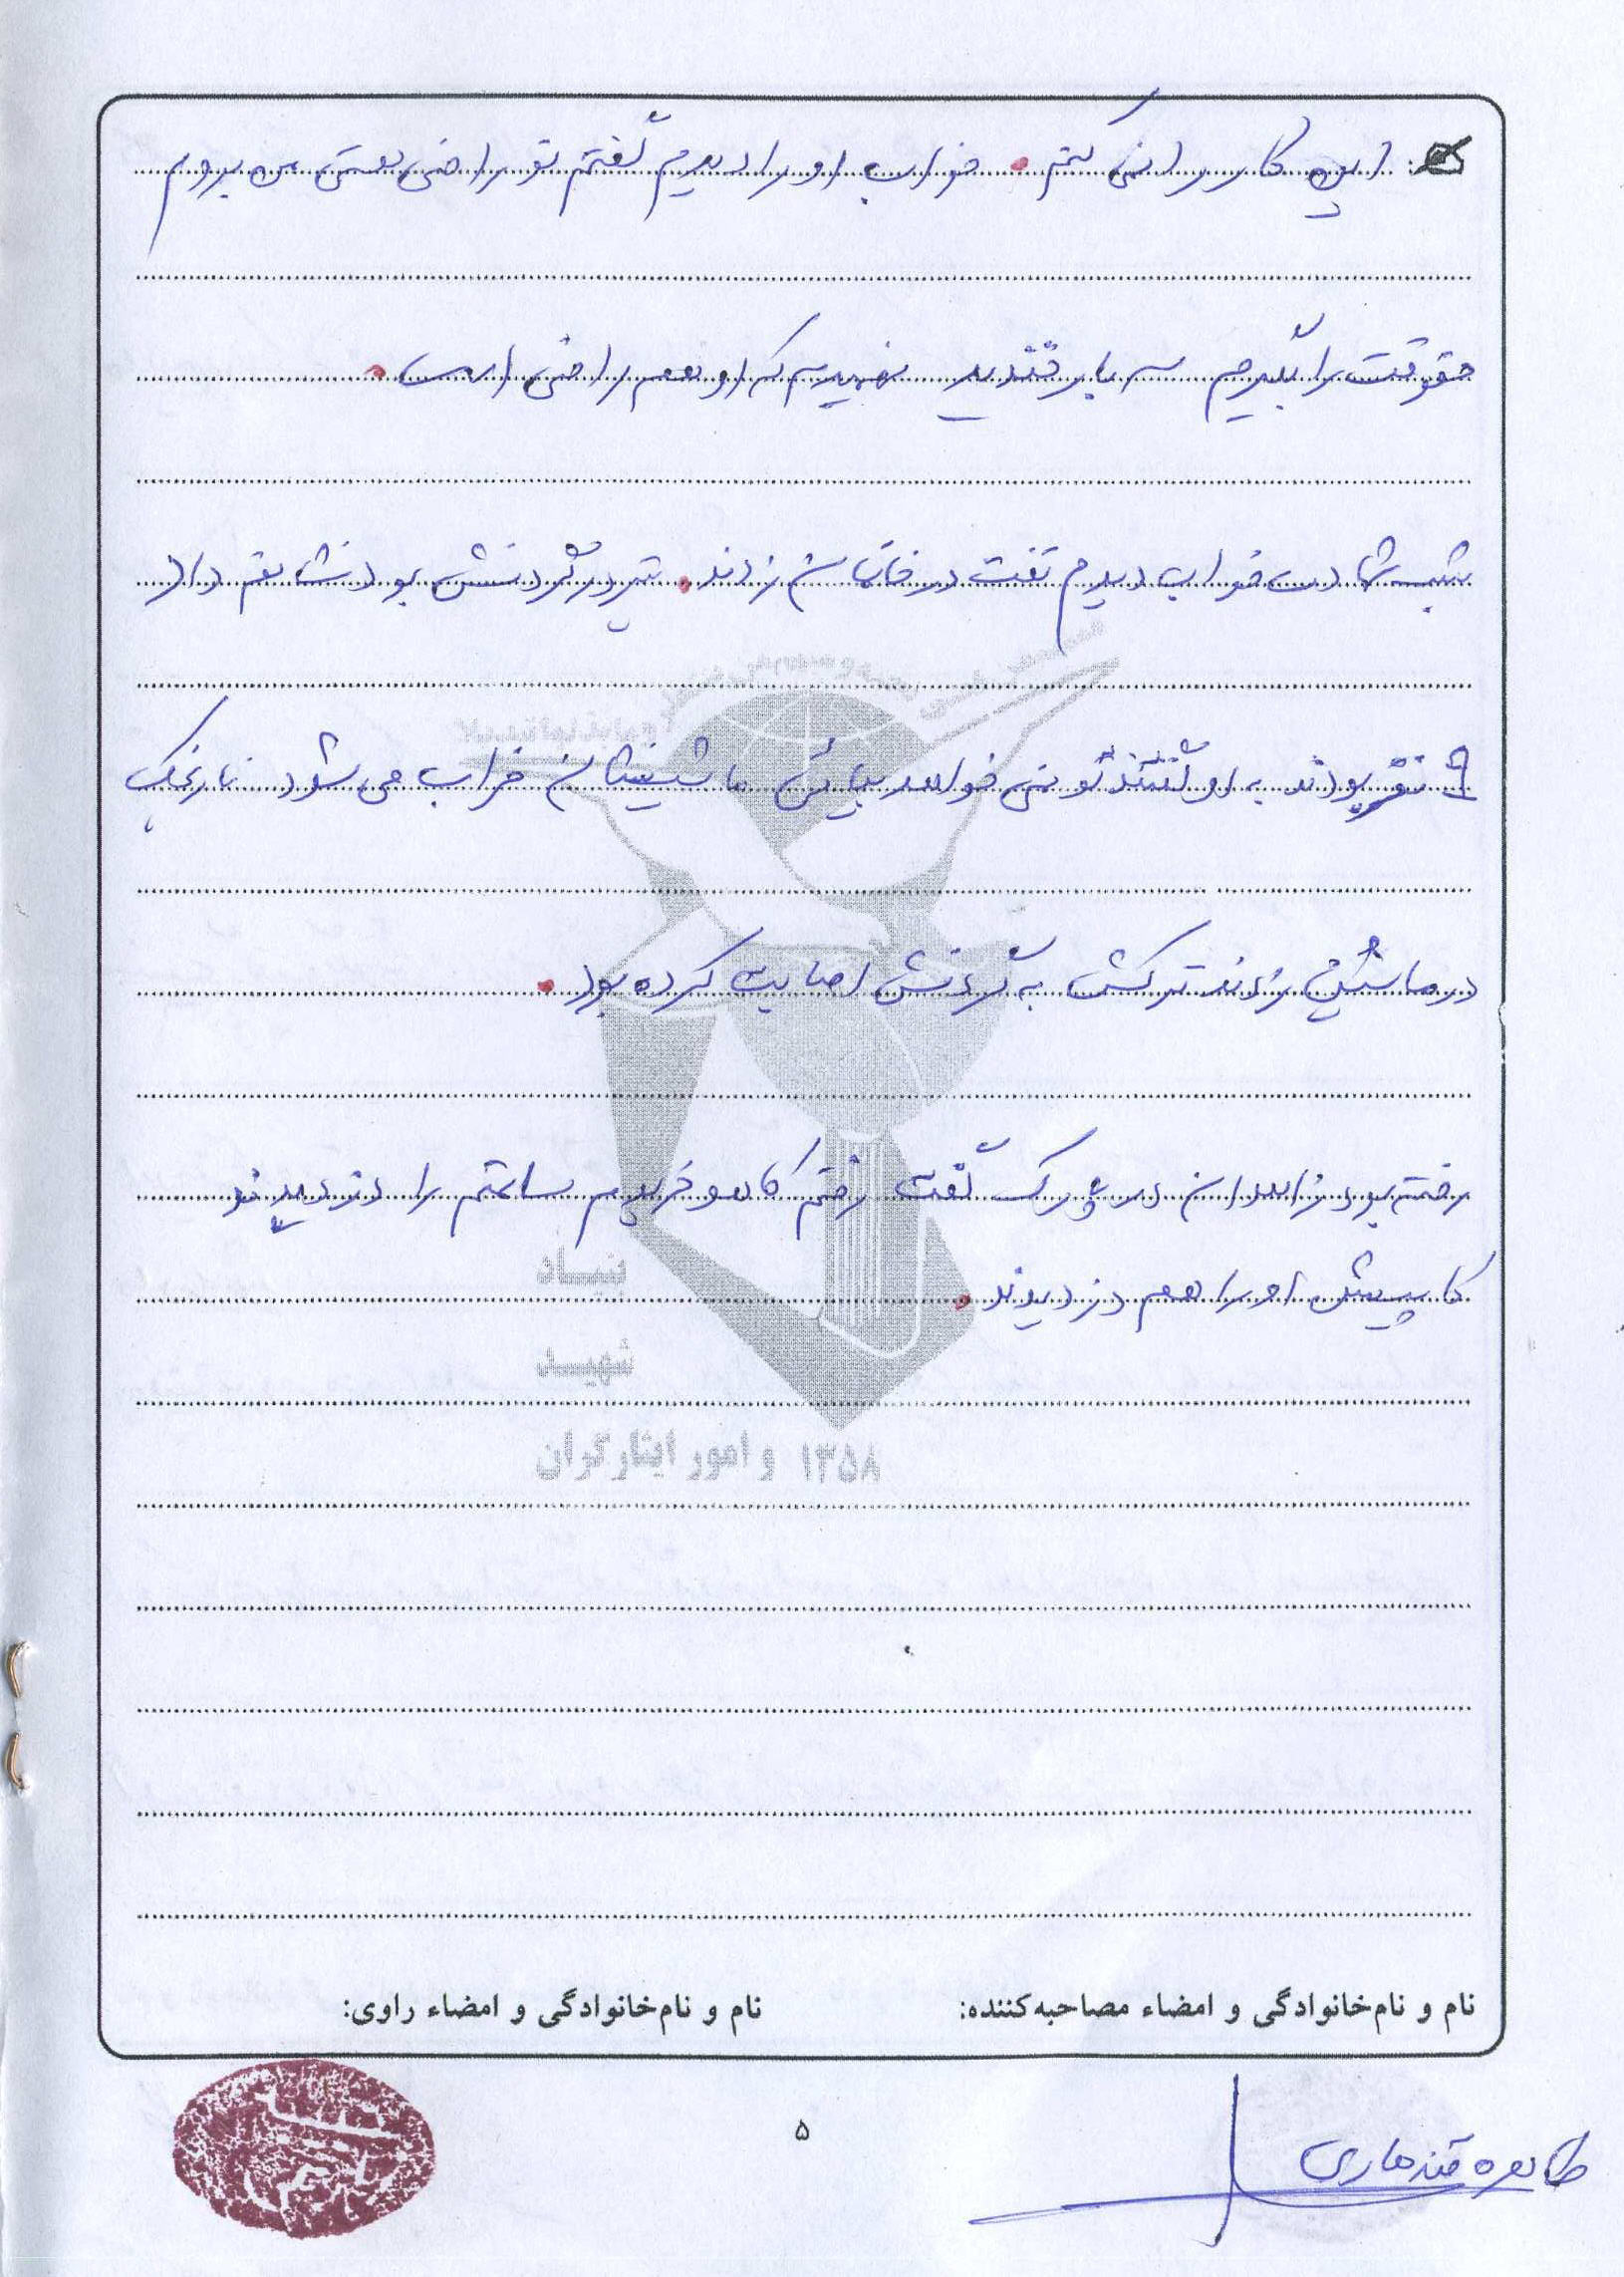 این کار را نمی کنم. خواب او را دیدم گفتم تو راضی هستی من بروم
حقوقت را بگیرم سه بار خندید فهمیدم که او هم راضی است.
شب شهادت خواب دیدم نفت در خانمان زدند. تیر در گردنش بود نشانم داد
9 نفر بودند به او گفتند تو نمی خواهد بیائی ماشینشان خراب می شود نارنجک
در ماشین زدند ترکش به گردنش اصابت کرده بود.
رفته بود زاهدان در پارک گفت رفتم کاهو خریدم ساعتم را دزدیدند
کاپشن او را هم دزدیدند.
بنیاد
شهید
و امور ایثارگران ۱۳۵۸
نام و نام‌خانوادگی و امضاء مصاحبه‌کننده: نام و نام‌خانوادگی و امضاء راوی:
۵
طاهره قندهاری